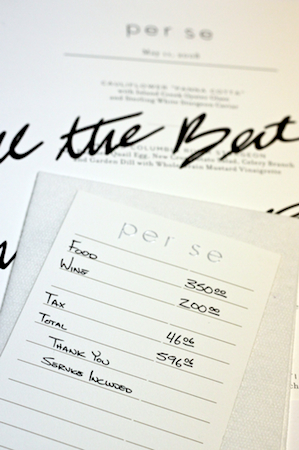 per se
CAULIFLOWER "PANNA COTTA"
with Island Creek Oyster Glaze
and Sterling White Sturgeon Caviar
the Best
COLUMBIA STURGEON
Quail Egg, New Salad, Celery Branch
and Garden Dill with Mustard Vinaigrette
per se
FOOD 350 00
WINE 200 00
TAX 46 06
TOTAL 596 06
THANK YOU
SERVICE INCLUDED